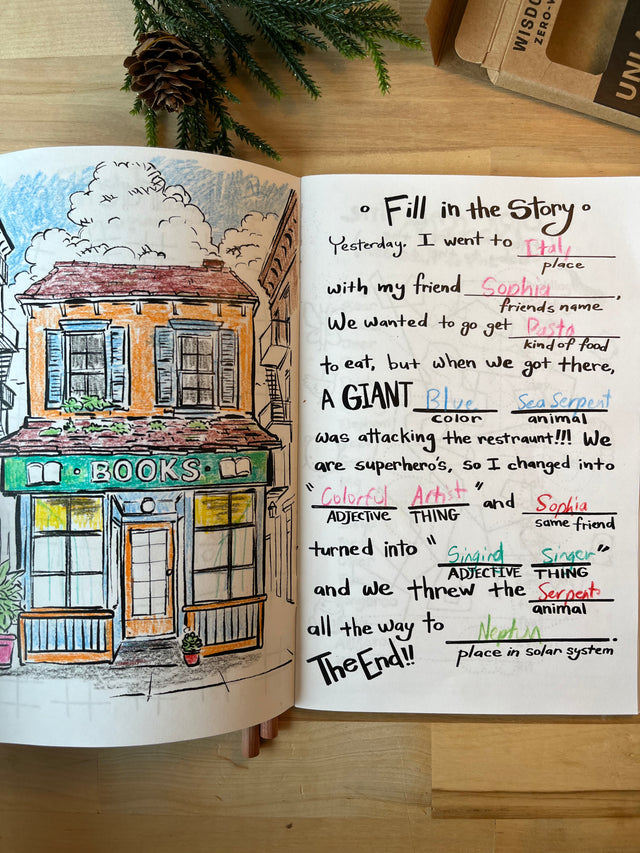 WISDO
ZERO-W
Fill in the Story
Yesterday. I went to Italy
place
with my friend Sophia,
friends name
We wanted to go get Pasta
kind of food
to eat, but when we got there,
A GIANT Blue Sea Serpent
color animal
was attacking the restraunt!!! We
are superhero's, so I changed into
"Colorful Artist" and Sophia
ADJECTIVE THING same friend
turned into "Singind Singer"
ADJECTIVE THING
and we threw the Serpent
animal
all the way to Neptun.
place in solar system
The End!!
BOOKS